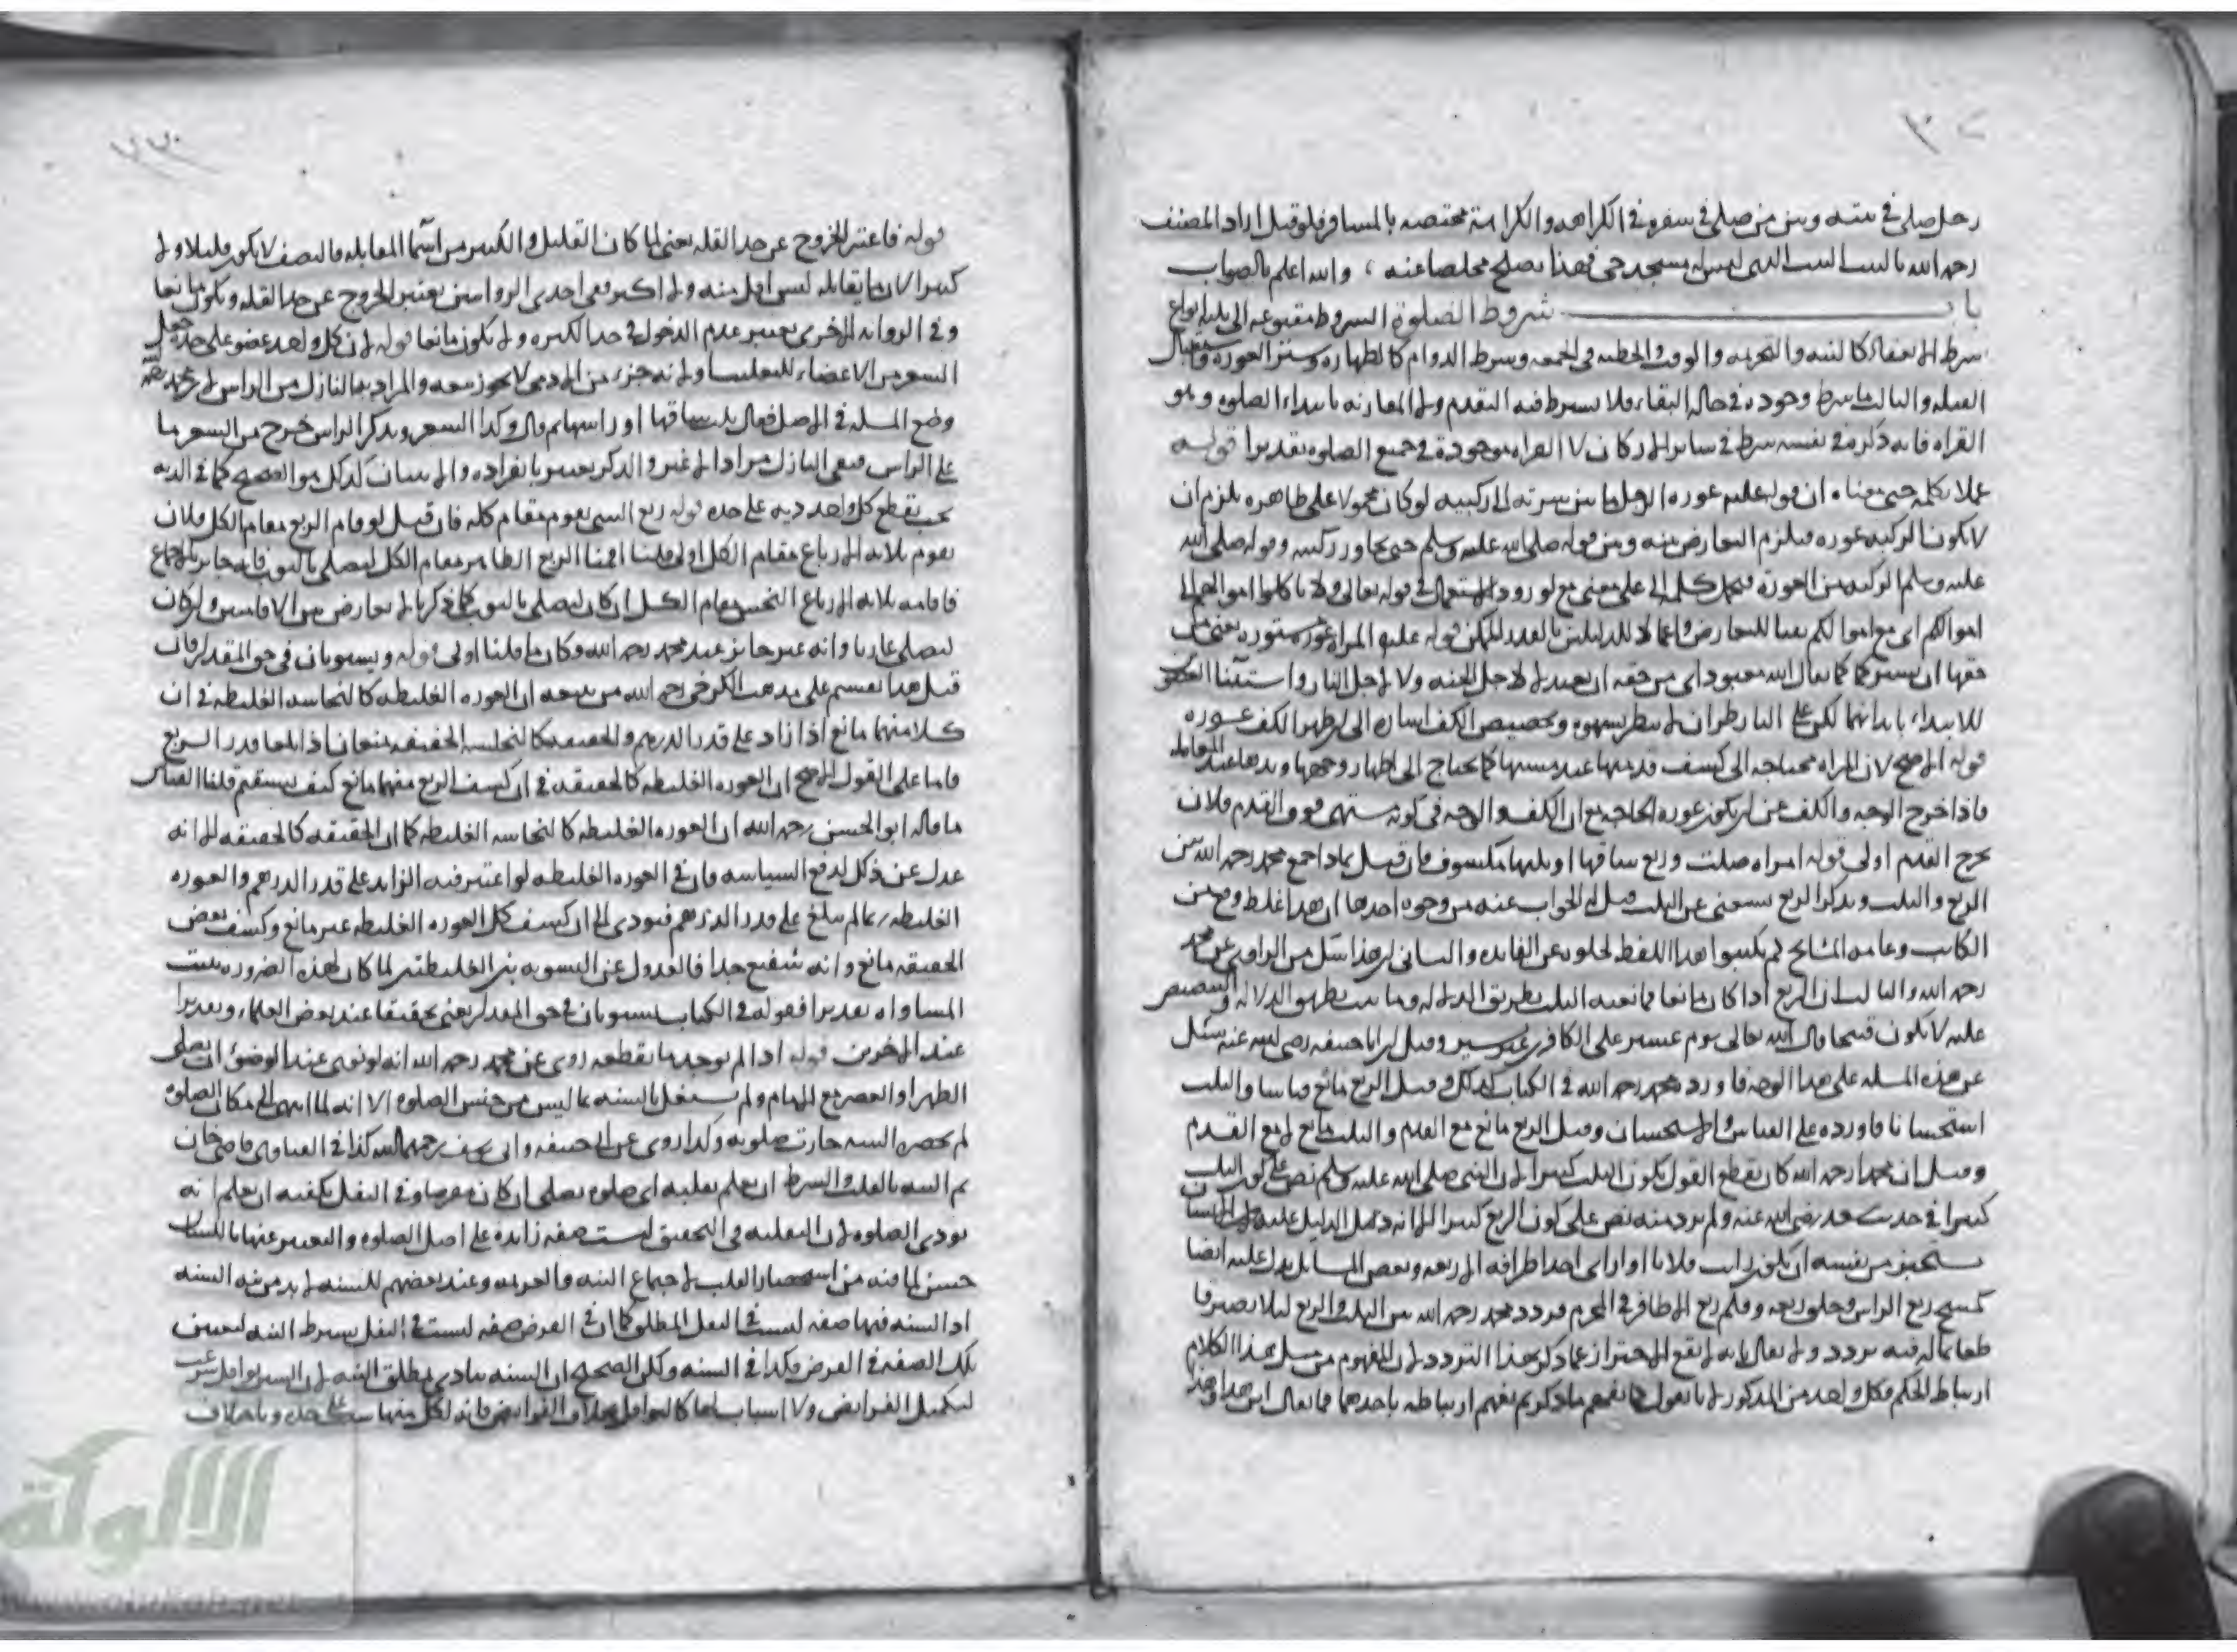 رجل صلى في بيته وبين من صلى في سفره في الكراهة والكرامة مختصة بالمسافر فلو قيل اراد المصنف
رحمه الله بالبيت البيت الذي ليس له مسجد حي فهذا يصلح مخلصا عنه ، والله اعلم بالصواب
باب شروط الصلوة الشروط متنوعة الى ثلثة انواع
شرط الانعقاد كالنية والتحريمة والوقت والخطبة في الجمعة وشرط الدوام كالطهارة وستر العورة واستقبال
القبلة والثالث ما شرط وجوده في حالة البقاء فلا يشترط فيه التقدم ولا المقارنة بابتداء الصلوة وهو
القراة فانه ذكر في نفسه شرط في سائر الاركان لان القراة موجودة في جميع الصلوة تقديرا قوله
عملا بكلمة حتى معناه ان قوله عليه عورة الرجل ما بين سرته الى ركبتيه لو كان محمولا على ظاهره يلزم ان
لا يكون الركبة عورة فيلزم التعارض بينه وبين قوله صلى الله عليه وسلم حتى تجاوز ركبتيه وقوله صلى الله
عليه وسلم الركبة من العورة فتحمل كلمة الى على معنى مع لورود الاستعمال في قوله تعالى ولا تاكلوا اموالهم الى
اموالكم اى مع اموالكم نفيا للتعارض واعمالا للدليلين بالقدر الممكن قوله عليه المراة عورة مستورة يعنى من
حقها ان تستر كما يقال الله معبود اى من حقه ان يعبد لا لاجل الجنة ولا لاجل النار واستثنا العضوين
للابتداء بابدائهما لكن على الناظر ان لا ينظر بشهوة وتخصيص الكف اشارة الى ان ظهر الكف عورة
قوله الاصح لان المراة محتاجة الى كشف قدميها عند مشيها كما تحتاج الى اظهار وجهها ويدها عند المعاملة
فاذا خرج الوجه والكف عن ان يكون عورة للحاجة مع ان الكف والوجه في كونه مشتهى فوق القدم فلان
يخرج القدم اولى قوله امراة صلت وربع ساقها او ثلثها مكشوف فان قيل لماذا جمع محمد رحمه الله بين
الربع والثلث وبذكر الربع يستغنى عن الثلث قيل له الجواب عنه من وجوه احدها ان هذا غلط وقع من
الكاتب وعامة المشايخ لم يكتبوا هذا اللفظ لخلوه عن الفايدة والثانى ان هذا شك من الراوى عن محمد
رحمه الله والثالث ان الربع اذا كان مانعا فمانعية الثلث بطريق الدلالة وما ثبت بطريق الدلالة والتنصيص
عليه لا يكون قبيحا قال الله تعالى يوم عسير على الكافرين غير يسير وقيل ان ابا حنيفة رضى الله عنه سئل
عن هذه المسئلة على هذا الوجه فاورد محمد رحمه الله في الكتاب كذلك وقيل الربع مانع قياسا والثلث
استحسانا فاورده على القياس والاستحسان وقيل الربع مانع مع القدم والثلث مانع لا مع القدم
وقيل ان محمدا رحمه الله كان يقطع القول بكون الثلث كثيرا لان النبى صلى الله عليه وسلم نص على كون الثلث
كثيرا في حديث سعد رضى الله عنه ولم يرد منه نص على كون الربع كثيرا الا انه دل الدليل عليه فان الانسان
يستجيز من نفسه ان يقول رايت فلانا اذا راى احد اطرافه الاربعة وبعض المسائل يدل عليه ايضا
كمسح ربع الراس وحلق ربعه وقلم ربع الاظافر في المحرم فردد محمد رحمه الله بين الثلث والربع ليلا يصير قا
طعا بما له فيه تردد ولا يقال بانه لا يقع الاحتراز عما ذكر بهذا التردد لان المفهوم من مثل هذا الكلام
ارتباط الحكم بكل واحد من المذكورين لانا نقول كما يفهم ما ذكرتم يفهم ارتباطه باحدهما كما يقال اين هذا وهذا
قوله فاعتبر الخروج عن حد القلة يعنى لما كان القليل والكثير من اسما المقابلة فالنصف لا يكون قليلا ولا
كثيرا لان ما يقابله ليس اقل منه ولا اكثر ففى احدى الروايتين يعتبر الخروج عن حد القلة ويكون مانعا
وفي الرواية الاخرى يعتبر عدم الدخول في حد الكثرة ولا يكون مانعا قوله لان كل واحد عضو على حدة جعل
الشعر من الاعضاء للتغليب او لانه جزء من الادمى لا يجوز بيعه والمراد به النازل من الراس لان محمدا رحمه
وضع المسئلة في الاصل فقال ثلث ساقها او راسها ثم قال وكذا الشعر وبذكر الراس خرج من الشعر ما
على الراس فبقى النازل مرادا لا غير والذكر يعتبر بانفراده والانثيان كذلك هو الصحيح كما في الدية
يجب بقطع كل واحد دية على حدة قوله ربع الشى يقوم مقام كله فان قيل لو قام الربع مقام الكل فلان
يقوم ثلاثة الارباع مقام الكل اولى قلنا اقمنا الربع الطاهر مقام الكل ليصلى بالثوب فانه جايز بالاجماع
فاقامة ثلاثة الارباع النجس مقام الكل ان كان ليصلى بالثوب كما ذكرنا لا تعارض بين الاقامتين وان كان
ليصلى عاريا وانه غير جايز عند محمد رحمه الله وكان ما قلنا اولى قوله ويستويان في حق المقدار فان
قيل هذا يستقيم على مذهب الكرخى رحمه الله من تبعه ان العورة الغليظة كالنجاسة الغليظة في ان
كلا منهما مانع اذا زاد على قدر الدرهم والخفيفة كالنجاسة الخفيفة يمنعان اذا بلغا قدر الربع
فاما على القول الاصح ان العورة الغليظة كالخفيفة في ان كشف الربع منهما مانع كيف يستقيم قلنا القياس
ما قاله ابو الحسن رحمه الله ان العورة الغليظة كالنجاسة الغليظة كما ان الخفيفة كالخفيفة الا انه
عدل عن ذلك لدفع السياسة فان في العورة الغليظة لو اعتبر فيه الزايد على قدر الدرهم والعورة
الغليظة ربما لم تبلغ على قدر الدرهم فيودى الى ان كشف كل العورة الغليظة غير مانع وكشف بعض
الخفيفة مانع وانه شنيع جدا فالعدول عن التسوية بين الغليظتين لما كان لهذه الضرورة يثبت
المساواة تقديرا فقوله في الكتاب يستويان في حق المقدار يعنى تحقيقا عند بعض العلماء وتقديرا
عند الاخرين قوله اذا لم يوجد ما يقطعه روى عن محمد رحمه الله انه لو نوى عند الوضوء ان يصلى
الظهر او العصر مع الامام ولم يشتغل بالنية بما ليس من جنس الصلوة الا انه لما انتهى الى مكان الصلوة
لم تحضره النية جازت صلوته وكذا روى عن ابى حنيفة وابى يوسف رحمهما الله كذا في الفتاوى قاضى خان
ثم النية بالقلب والشرط ان يعلم بقلبه اى صلوة يصلى ان كان مفترضا وفي النفل يكفيه ان يعلم انه
يودى الصلوة لان النفلية في التحقيق ليست صفة زايدة على اصل الصلوة والتعبير عنها باللسان
حسن لما فيه من استحضار القلب لاجتماع النية والعزيمة وعند بعضهم للسنة لا بد من نية السنة
اذ السنة فيها صفة ليست في النفل المطلق كما ان في الفرض صفة ليست في النفل يشترط النية لتعيين
تلك الصفة في الفرض فكذا في السنة ولكن الصحيح ان السنة تتادى بمطلق النية لان السنن نوافل شرعت
لتكميل الفرايض ولا اسباب لها كالنوافل بخلاف الفرايض فانه لكل منها سبب على حدة وباختلاف